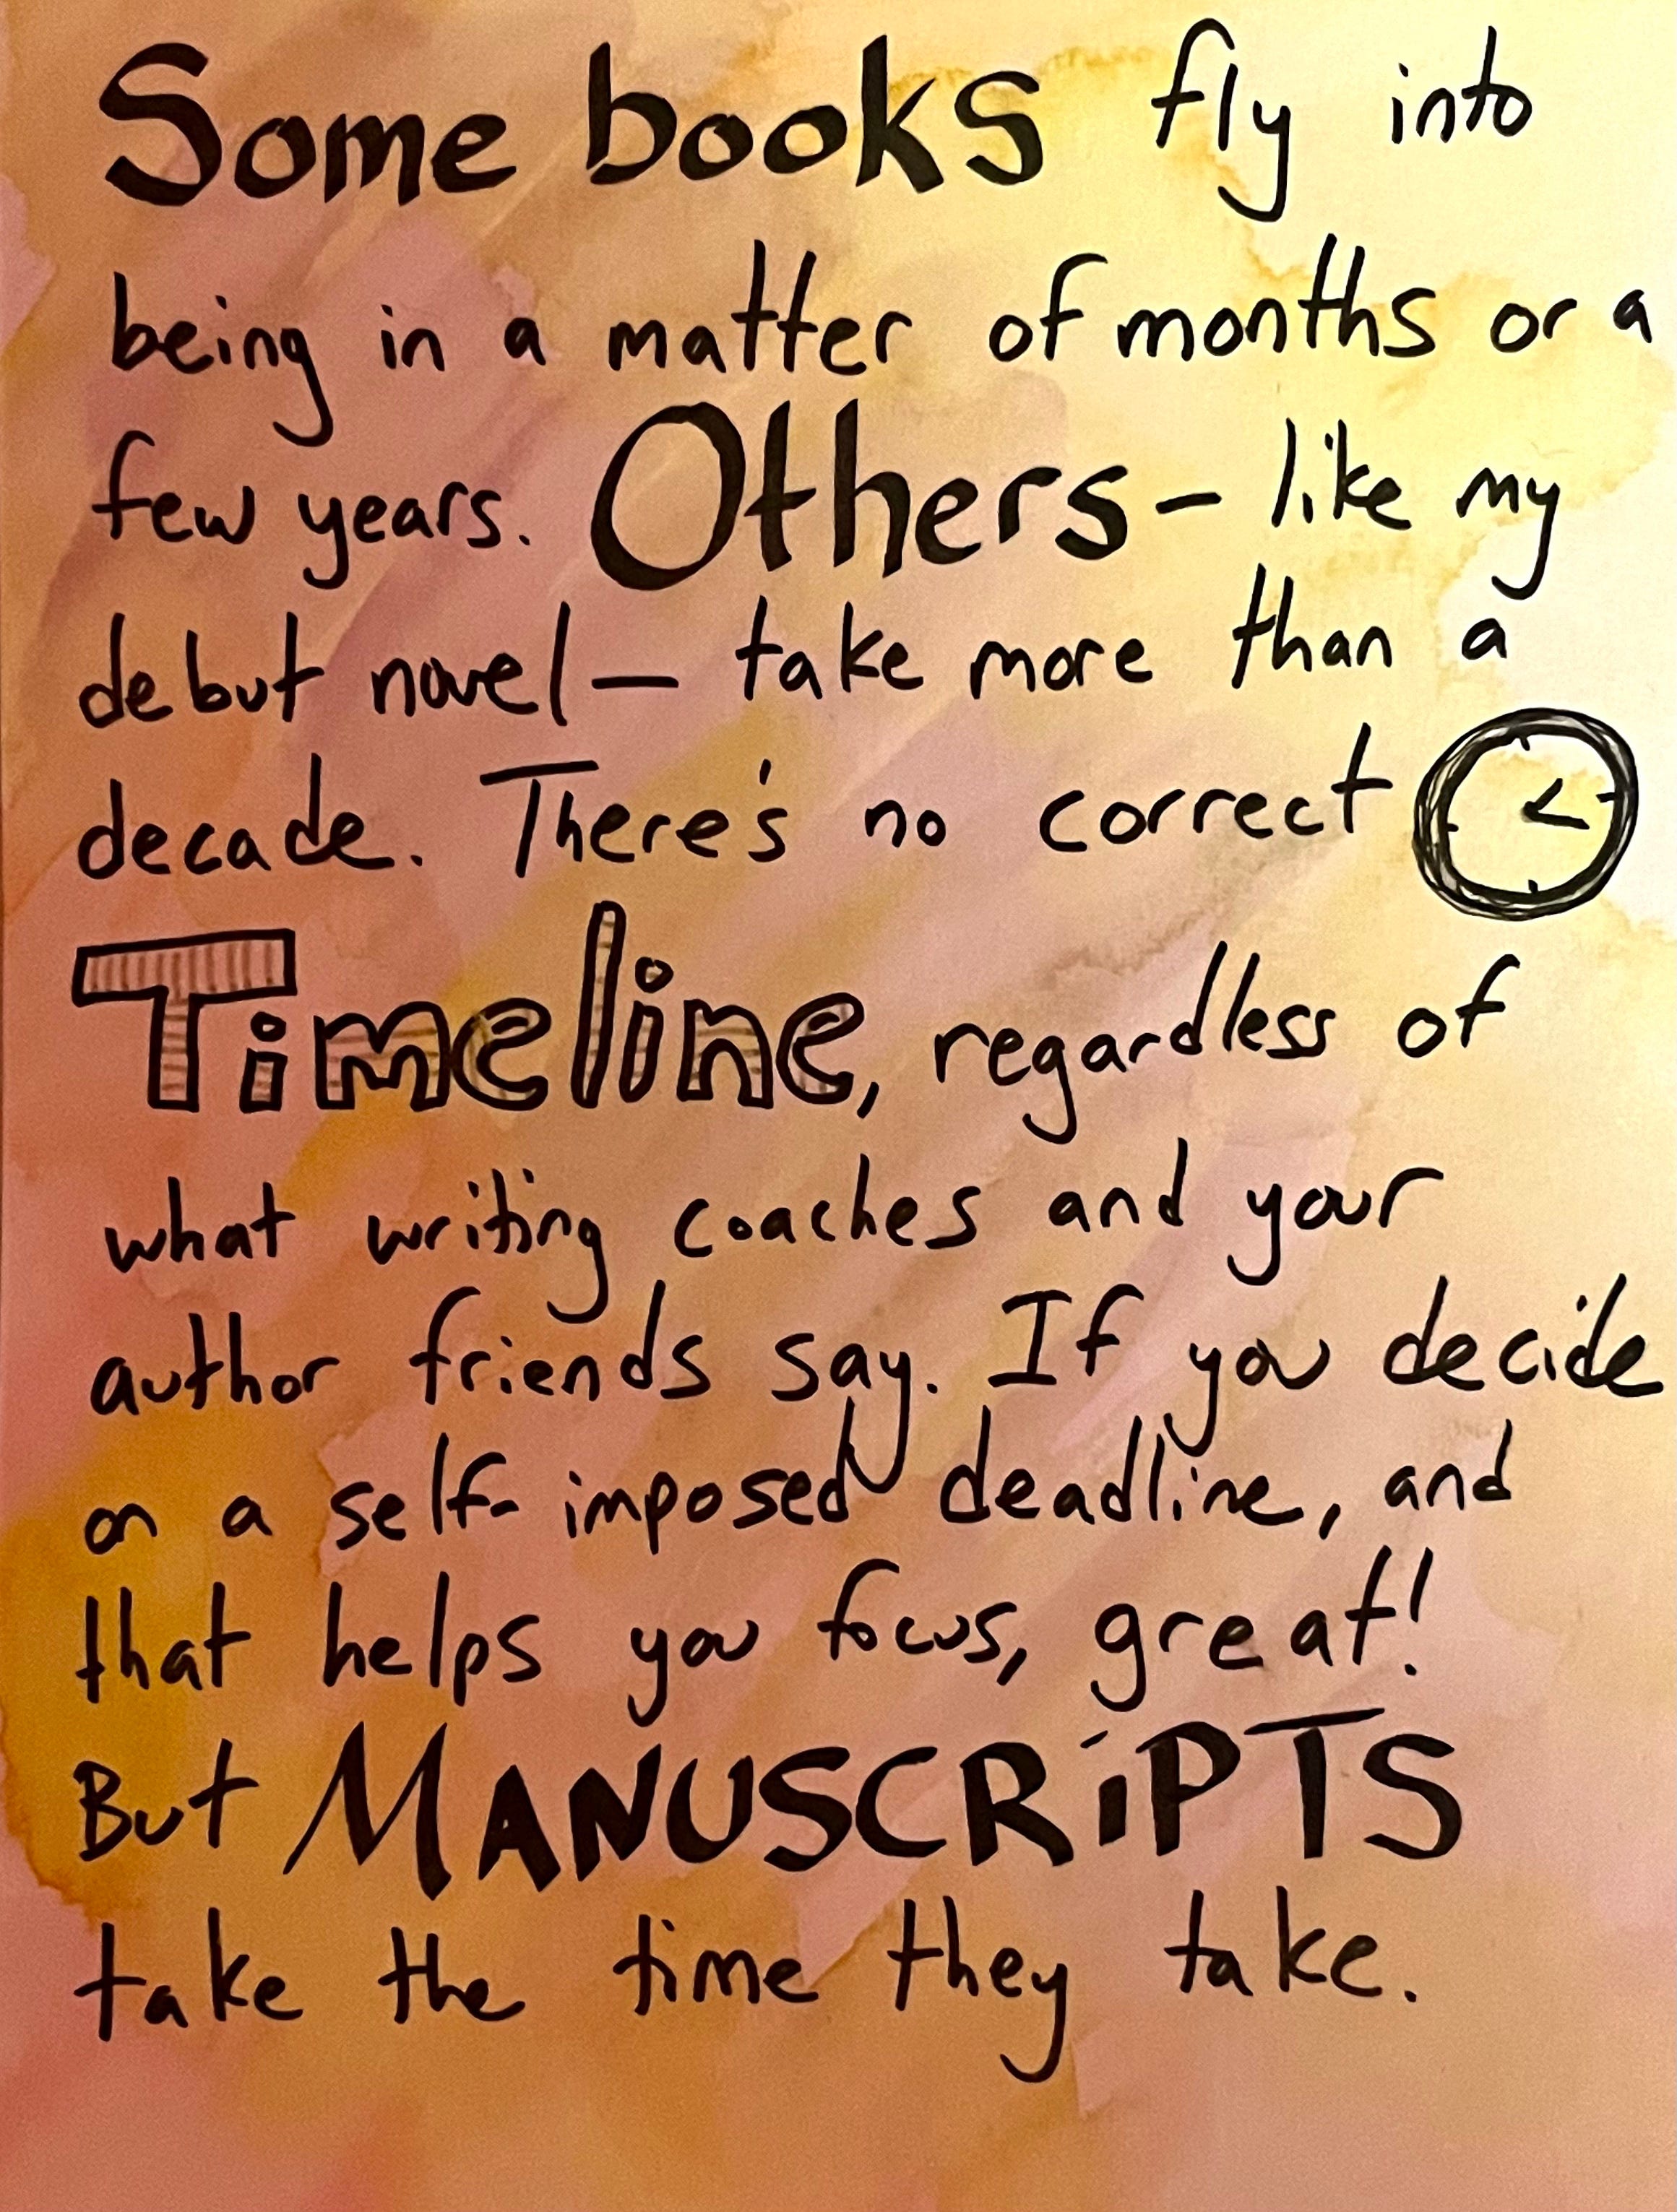 Some books fly into
being in a matter of months or a
few years. Others – like my
debut novel – take more than a
decade. There's no correct
Timeline, regardless of
what writing coaches and your
author friends say. If you decide
on a self-imposed deadline, and
that helps you focus, great!
But MANUSCRiPTS
take the time they take.